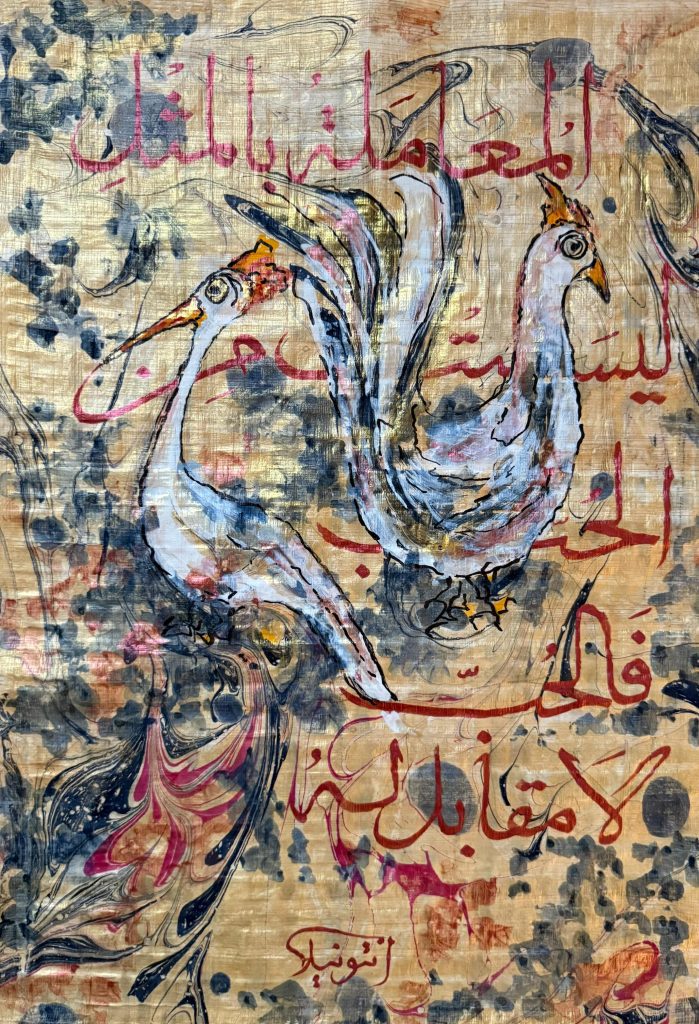 المُعَامَلَةُ بِالمِثْلِ
لَيسَت مِن
الحُب
فَالحُبّ
لَا مقَابل لهُ
انتونيلا